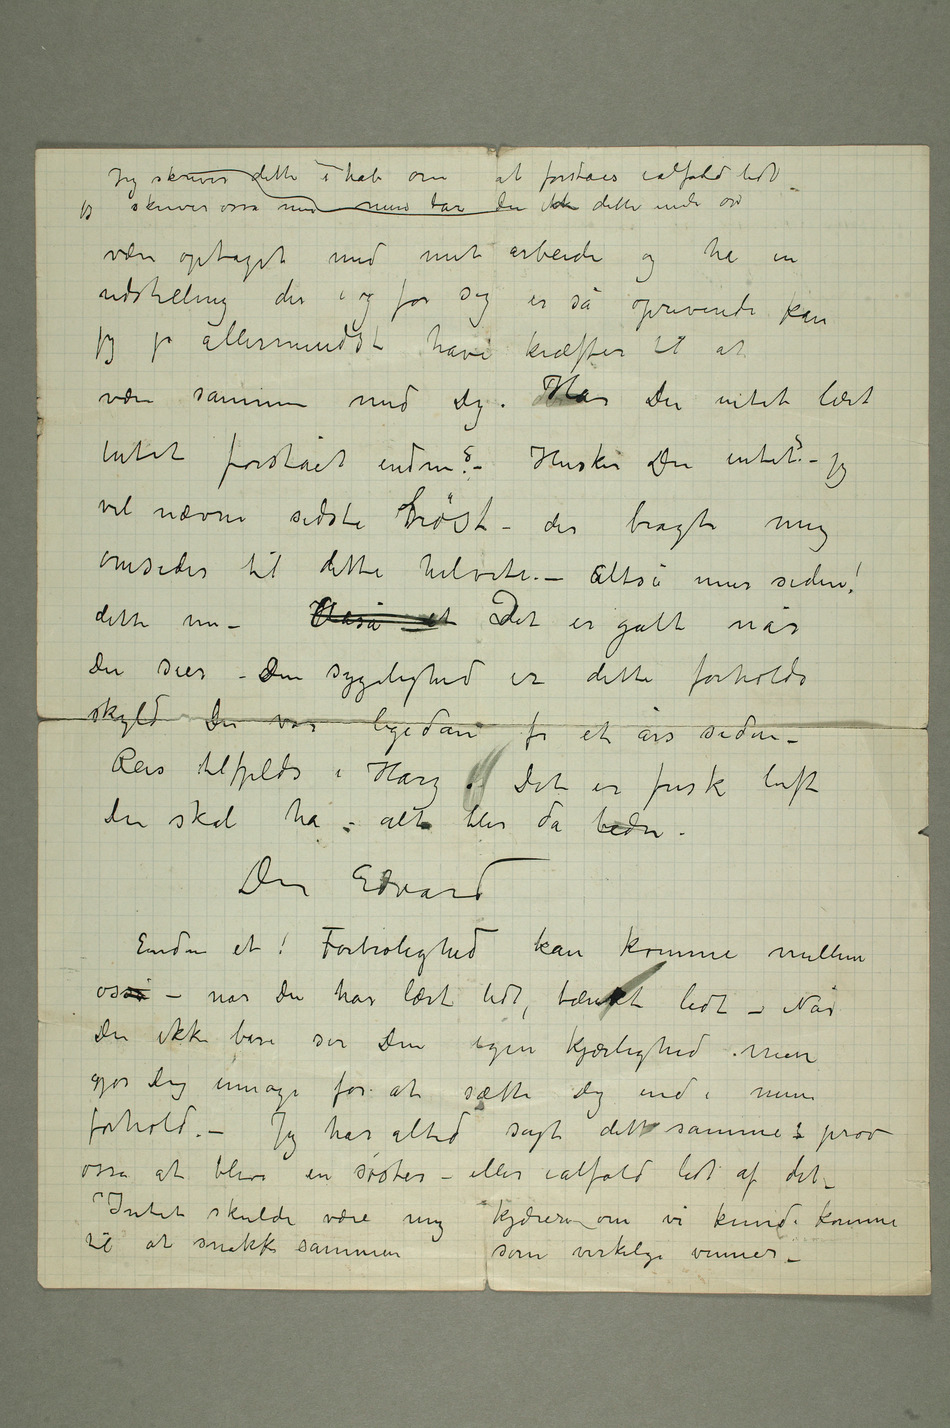 Jeg skriver dette i håb om at forstaaes ialfald lidt –
jeg skriver osså mer men bær Du ikke dette uede
være optaget med mit arbeide og ha en
udstilling der i og for sig er så oprivende kan
jeg jo allermindst have kræfter til at
være sammen med Dig. Har Du intet lært
intet forstået endnu? – Husker Du intet? – Jeg
vil nævne sidste høst – der bragte mig
omsider til dette helvete. – Altså mer siden!
dette nu – Det er galt når
Du sier – Din sygelighed er dette forholds
skyld Du var ligedan for et års siden –
Reis tilfjelds i Harz. Det er frisk luft
Du skal ha – alt blir da bedre.
Din Edvard
Endnu et! Fortrolighed kan komme mellem
os – når Du har lært lidt, tænkt lidt – Når
Du ikke bare ser Din egen kjærlighed men
gjør Dig umage for at sætte Dig ind i mine
forhold. – Jeg har altid sagt dette samme: prøv
osså at blive en søster – eller ialfald lidt af det –
Intet skulde være mig kjærere om vi kunde komme
til at snakke sammen som virkelige venner –